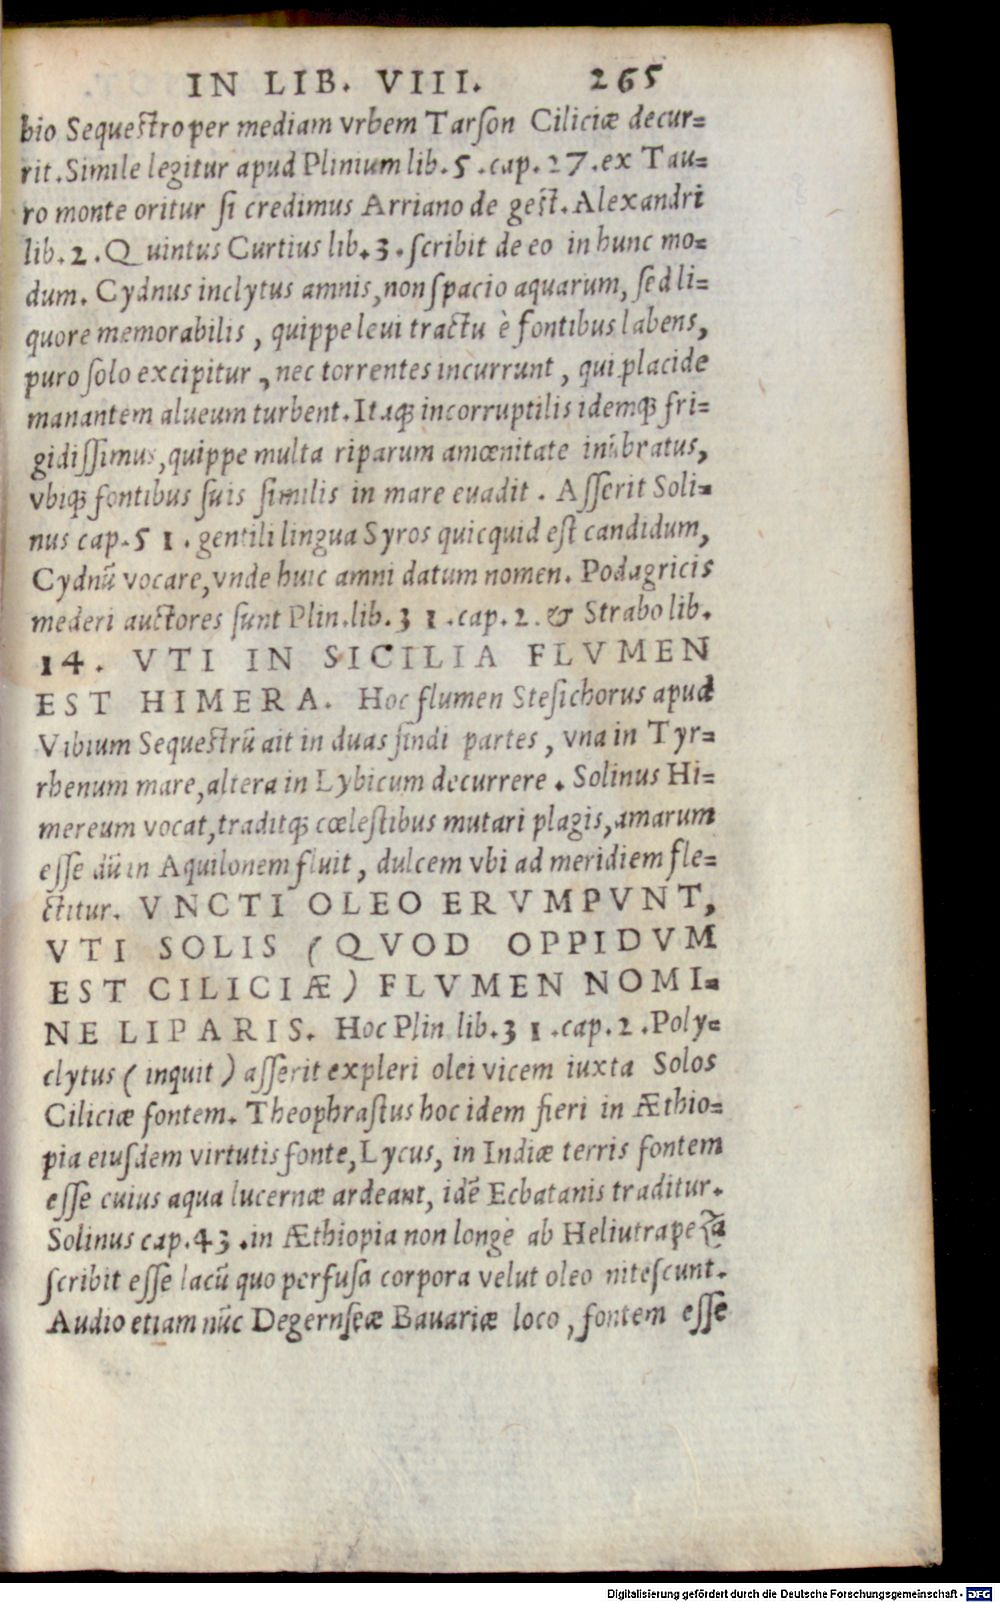 IN LIB. VIII. 265
bio Sequestro per mediam vrbem Tarson Ciliciæ decur=
rit. Simile legitur apud Plinium lib. 5. cap. 27. ex Tau=
ro monte oritur si credimus Arriano de gest. Alexandri
lib. 2. Quintus Curtius lib. 3. scribit de eo in hunc mo=
dum. Cydnus inclytus amnis, non spacio aquarum, sed li=
quore memorabilis, quippe leui tractu è fontibus labens,
puro solo excipitur, nec torrentes incurrunt, qui placide
manantem alueum turbent. Itaq; incorruptilis idemq; fri=
gidissimus, quippe multa riparum amœnitate inũbratus,
vbiq; fontibus suis similis in mare euadit. Asserit Soli=
nus cap. 51. gentili lingua Syros quicquid est candidum,
Cydnũ vocare, vnde huic amni datum nomen. Podagricis
mederi auctores sunt Plin. lib. 31. cap. 2. & Strabo lib.
14. VTI IN SICILIA FLVMEN
EST HIMERA. Hoc flumen Stesichorus apud
Vibium Sequestrũ ait in duas findi partes, vna in Tyr=
rhenum mare, altera in Lybicum decurrere. Solinus Hi=
mereum vocat, traditq; cœlestibus mutari plagis, amarum
esse dũ in Aquilonem fluit, dulcem vbi ad meridiem fle=
ctitur. VNCTI OLEO ERVMPVNT,
VTI SOLIS (QVOD OPPIDVM
EST CILICIÆ) FLVMEN NOMI=
NE LIPARIS. Hoc Plin lib. 31. cap. 2. Poly=
clytus (inquit) asserit expleri olei vicem iuxta Solos
Ciliciæ fontem. Theophrastus hoc idem fieri in Æthio=
pia eiusdem virtutis fonte, Lycus, in Indiæ terris fontem
esse cuius aqua lucernæ ardeant, idẽ Ecbatanis traditur.
Solinus cap. 43. in Æthiopia non longè ab Heliutrapeza
scribit esse lacũ quo perfusa corpora velut oleo nitescunt.
Audio etiam nũc Degernseæ Bauariæ loco, fontem esse
Digitalisierung gefördert durch die Deutsche Forschungsgemeinschaft - DFG